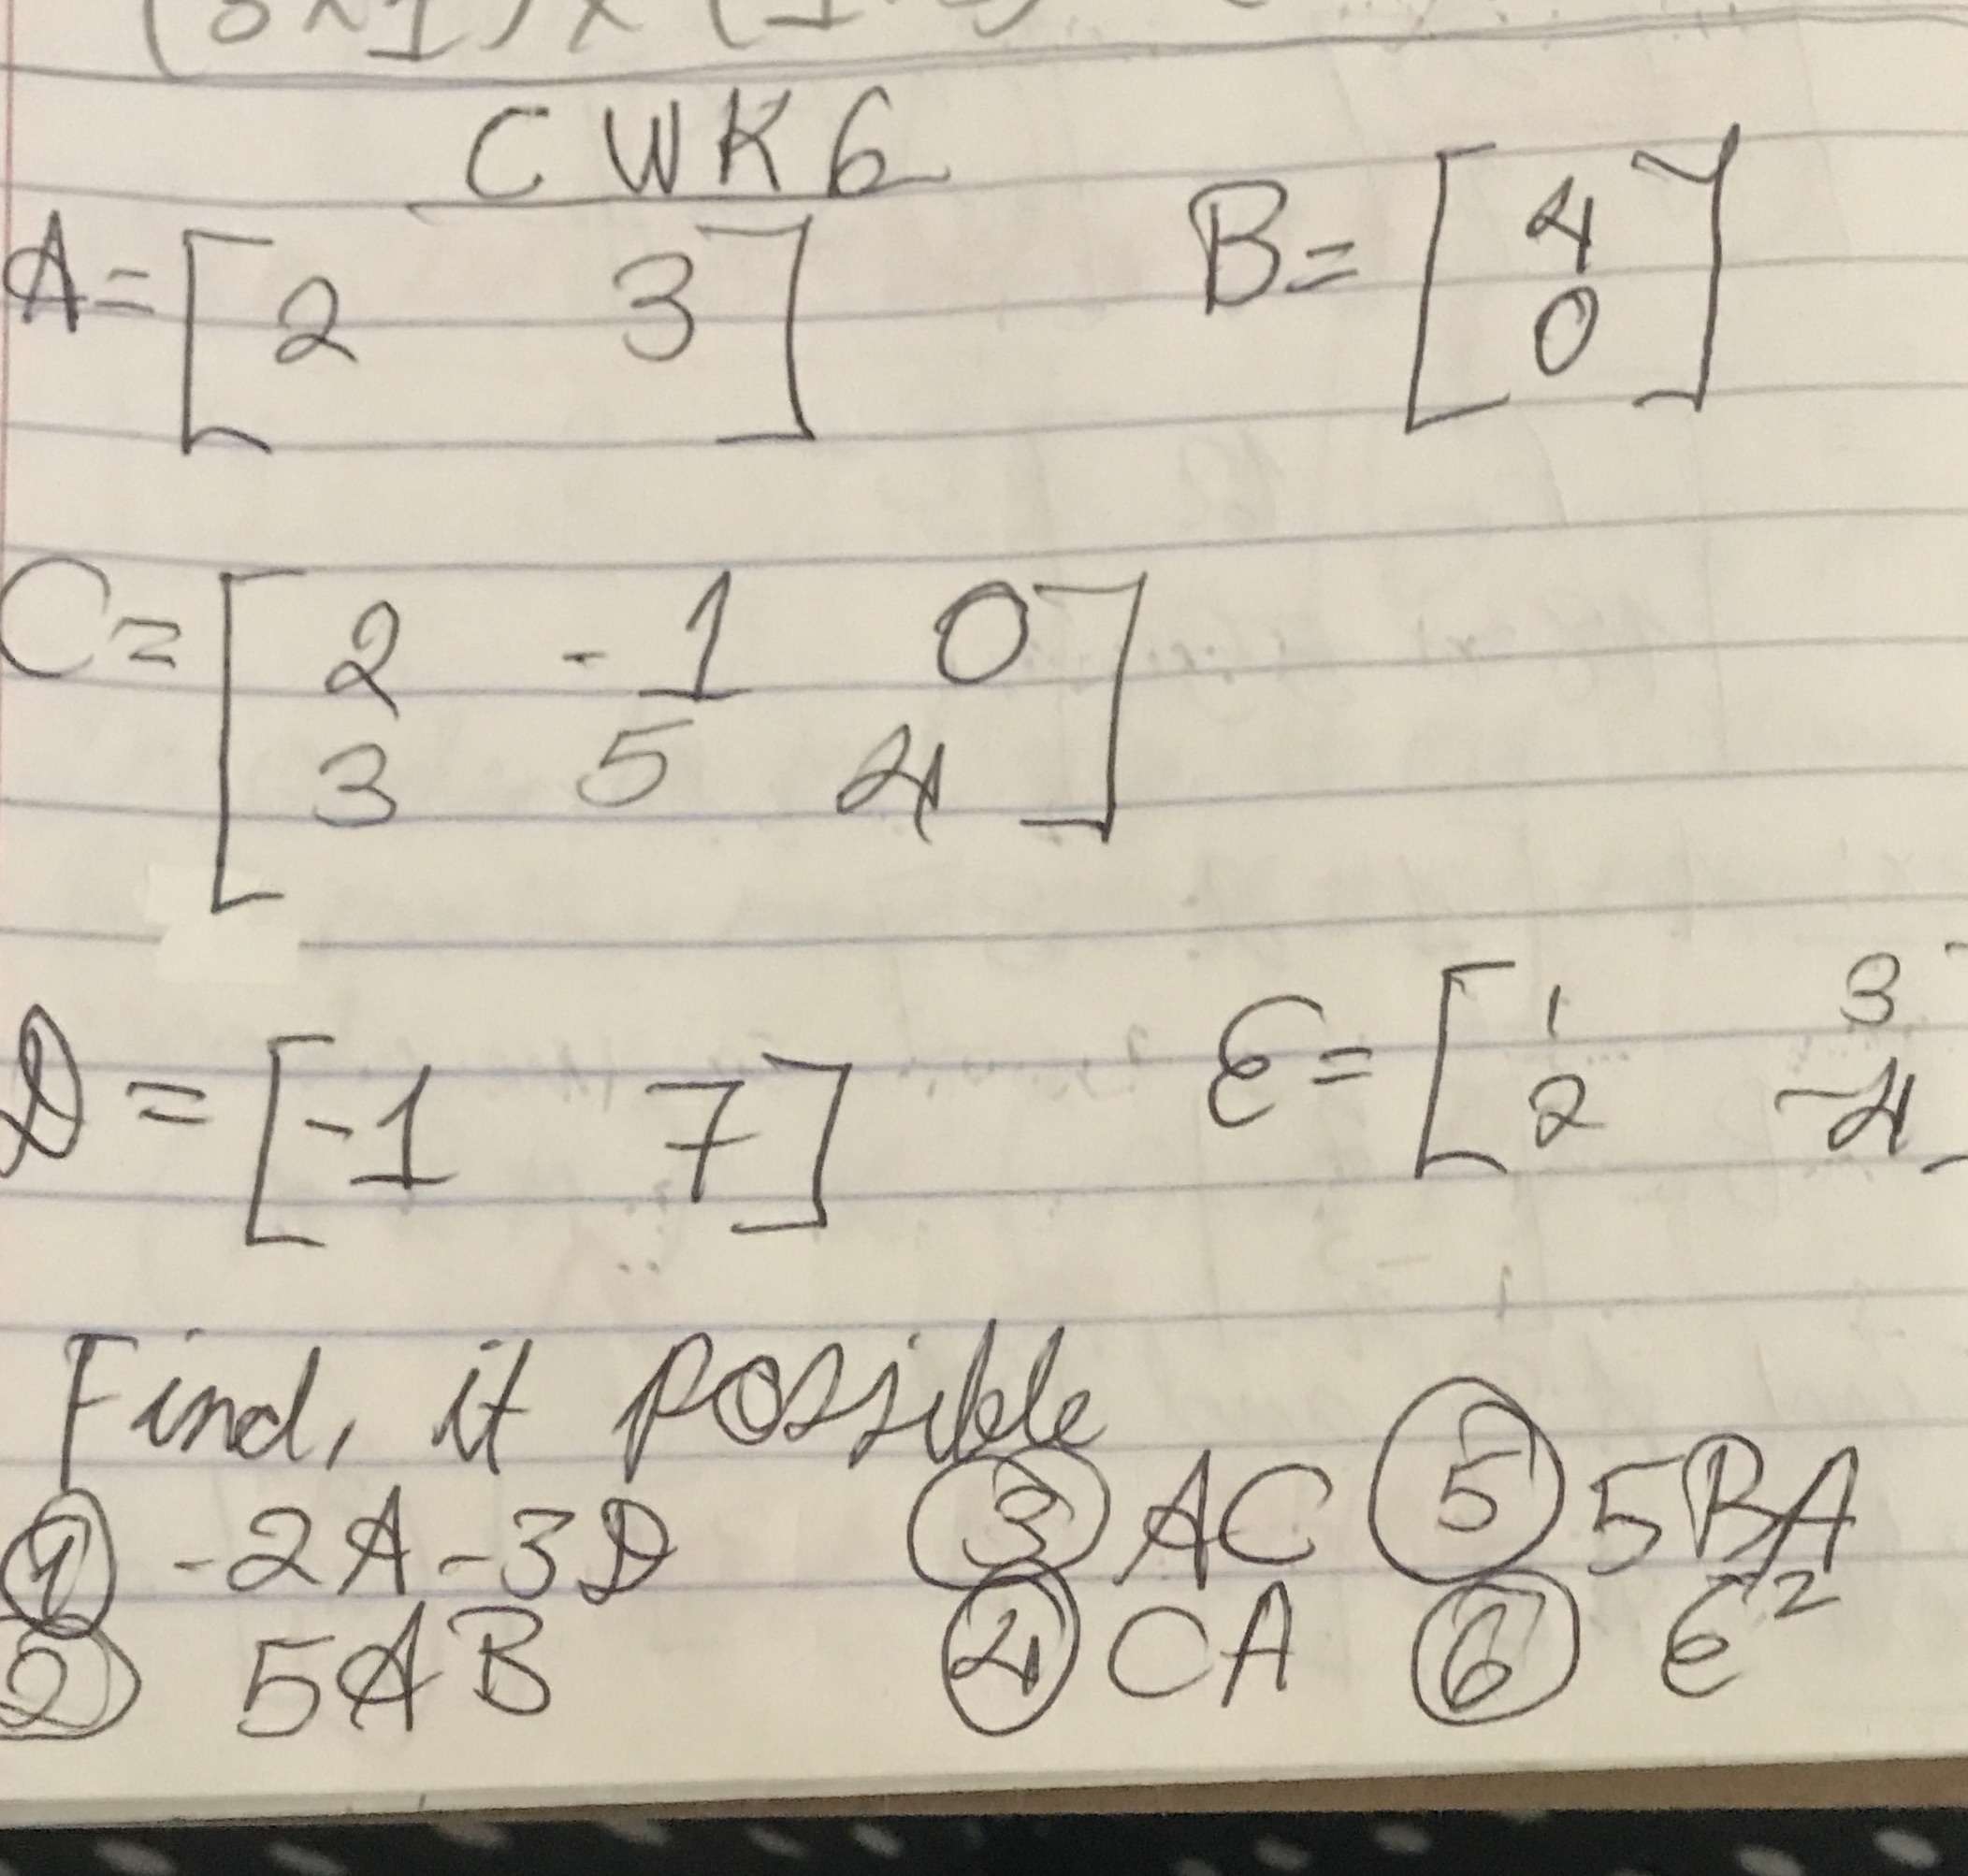 (3×1) × (1
CWK 6
A = [2 3] B = [4
0]
C = [2 -1 0
3 5 4]
D = [-1 7] E = [1 3
2 -4]
Find, if possible
① -2A-3D ③ AC ⑤ 5BA
② 5AB ④ CA ⑥ E²